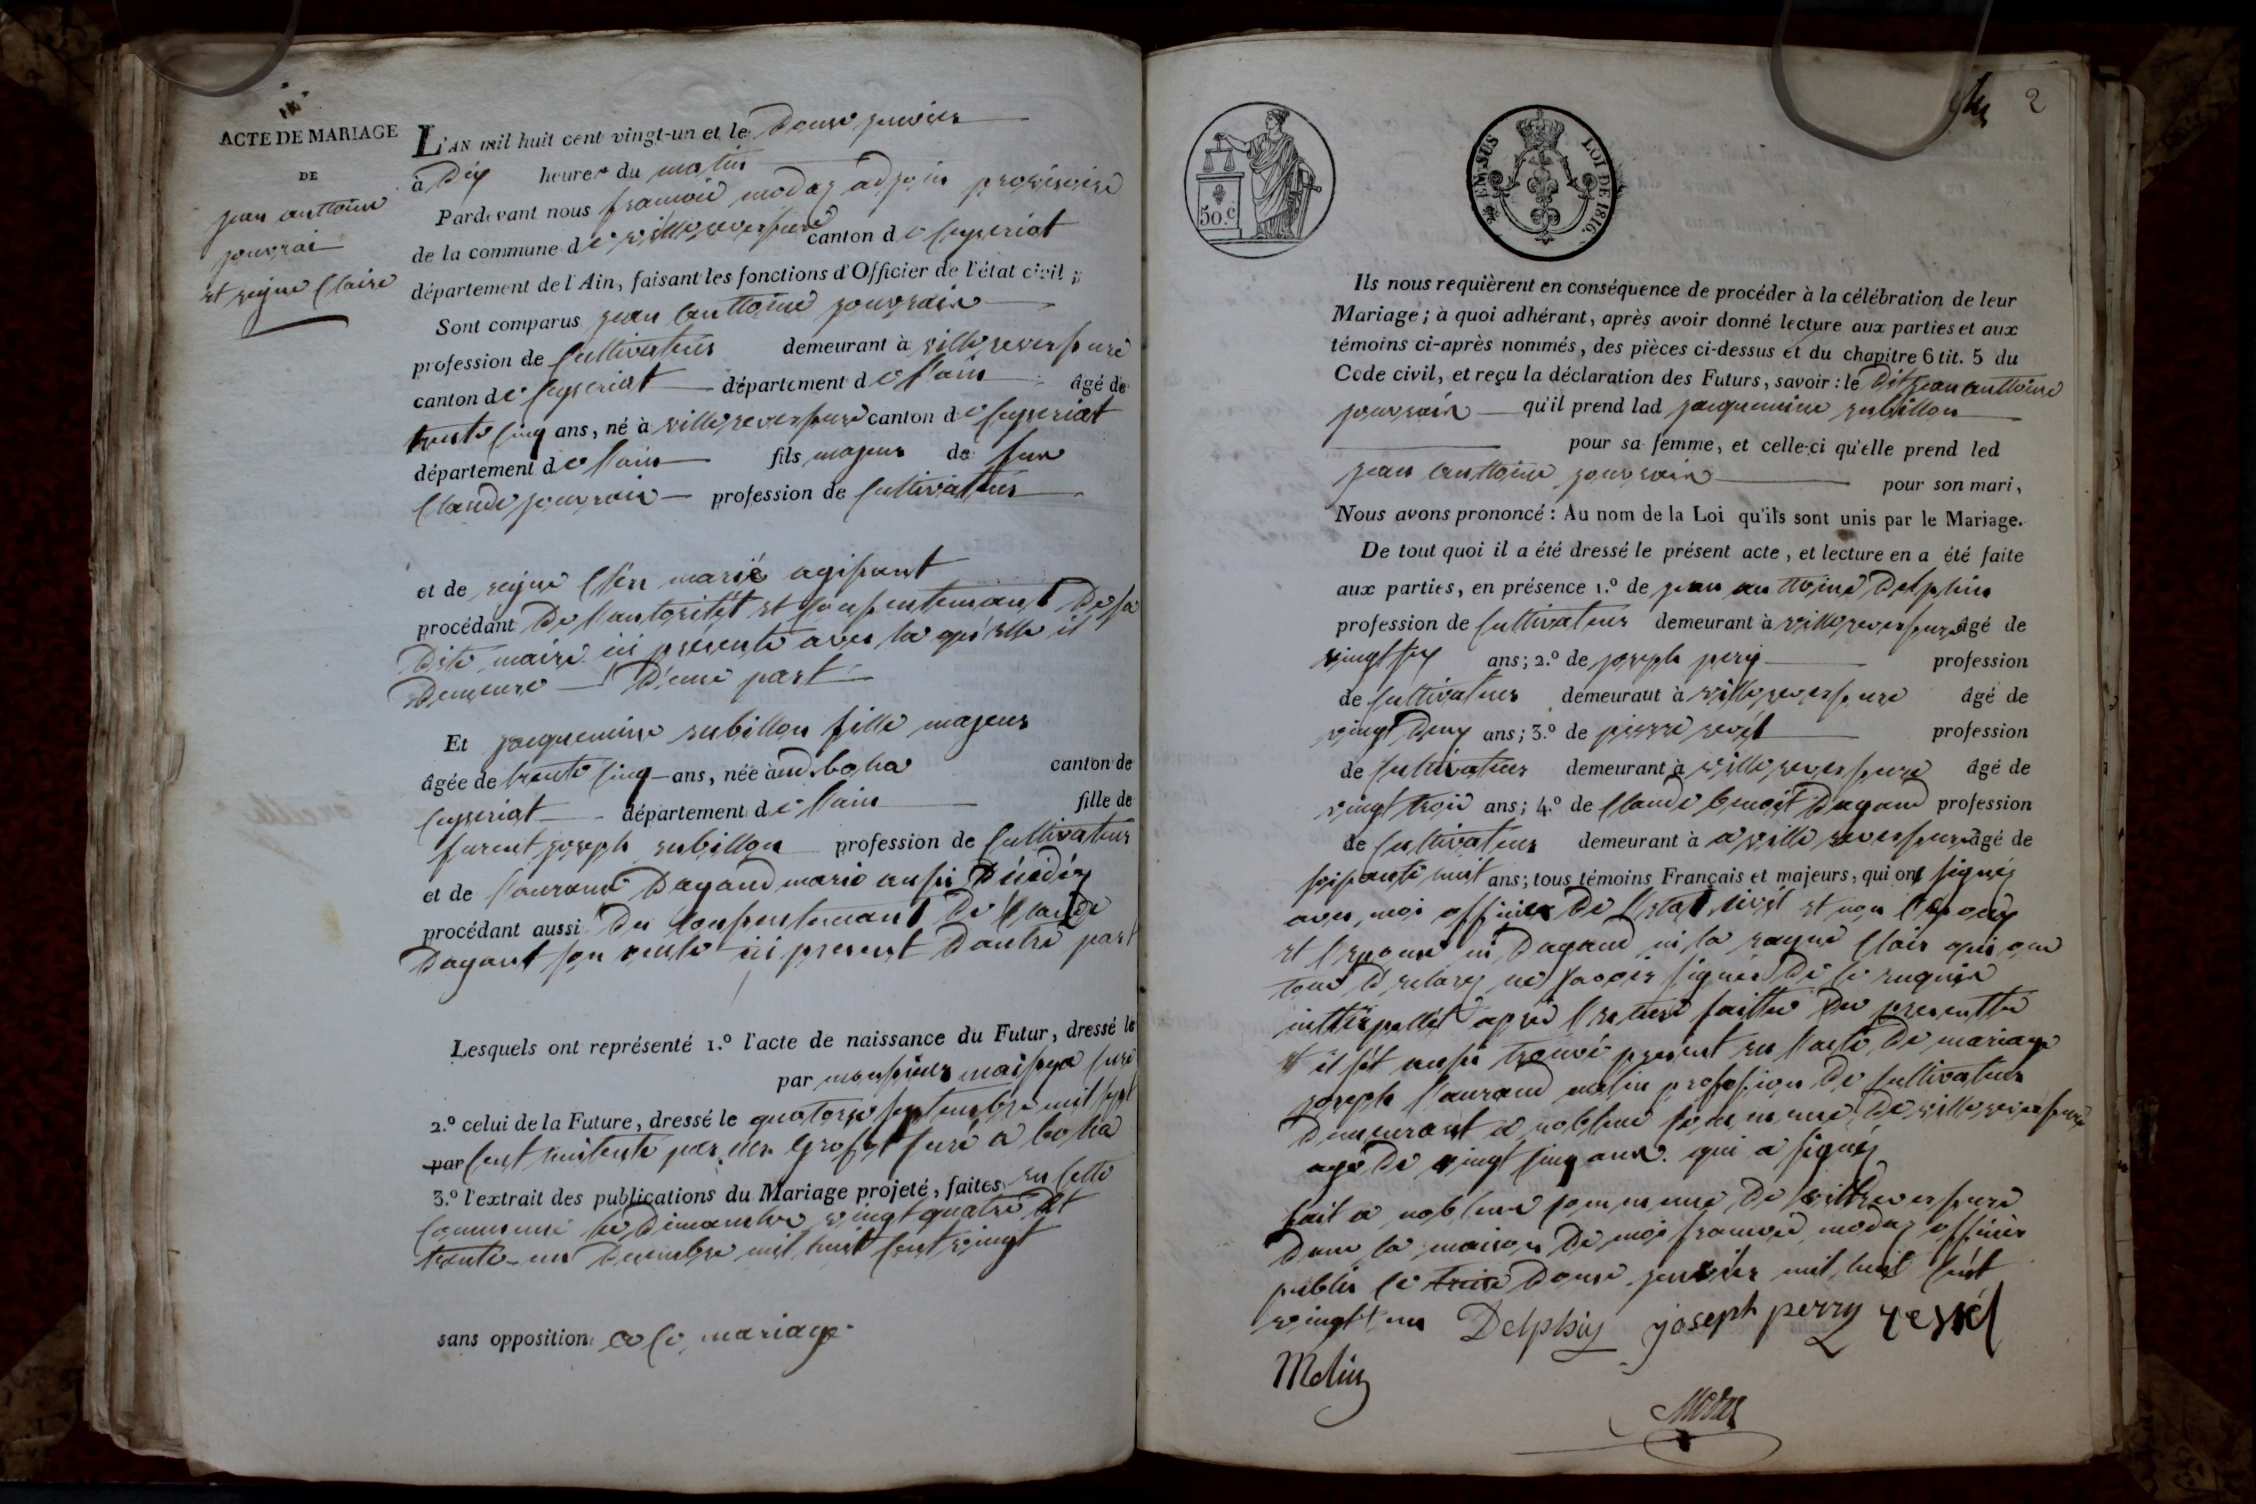 ACTE DE MARIAGE
DE
jean anttoine
jouvrai
et reigne Claire
L'AN mil huit cent vingt-un et le douse janvier
à Dix heures du matin
Pardevant nous francoie modaz adjoin provisoire
de la commune de villereversure canton de Ceyseriat
département de l'Ain, faisant les fonctions d'Officier de l'état civil;
Sont comparus jean anttoine jouvrain
profession de Cultivateur demeurant à villereversure
canton de Ceyseriat département de l'ain âgé de
trente cinq ans, né à villereversure canton de Ceyseriat
département de l'ain fils majeur de feux
Claude jouvrain profession de Cultivateur
et de reigne marié agissant
procédant De l'autoritét et Consentemant De sa
Dite maire ici presente avec la qu'elle il
Demeure D'eune part
Et jacquemine rubillon fille majeur
âgée de trente cinq ans, née à boha canton de
Ceyseriat département de l'ain fille de
furent joseph rubillon profession de Cultivateur
et de Dagand marie aussi Décédéz
procédant aussi Du Consentemant De Claude
Dagant son oncle ici present D'autre part
Lesquels ont représenté 1.º l'acte de naissance du Futur, dressé le
par monsieur curé
2.º celui de la Future, dressé le quatorze septembre mil sept
par Cent huitente par curé a boha
3.º l'extrait des publications du Mariage projeté, faites en Cette
Commune le Dimanche vingt quatre et
trente-un Decembre mil huit Cent vingt
sans opposition a Ce mariage
2
50.C
LOI DE 1816.
Ils nous requièrent en conséquence de procéder à la célébration de leur
Mariage; à quoi adhérant, après avoir donné lecture aux parties et aux
témoins ci-après nommés, des pièces ci-dessus et du chapitre 6 tit. 5 du
Code civil, et reçu la déclaration des Futurs, savoir: le Dit jean anttoine
jouvrain qu'il prend lad jacquemine rubillon
pour sa femme, et celle-ci qu'elle prend led
jean anttoine jouvrain pour son mari,
Nous avons prononcé: Au nom de la Loi qu'ils sont unis par le Mariage.
De tout quoi il a été dressé le présent acte, et lecture en a été faite
aux parties, en présence 1.º de jean anttoine Delphin
profession de Cultivateur demeurant à villereversure âgé de
vingt six ans; 2.º de joseph pery profession
de Cultivateur demeurant à villereversure âgé de
vingt Deux ans; 3.º de pierre revél profession
de Cultivateur demeurant à villereversure âgé de
vingt troie ans; 4.º de Claude benoit Dagand profession
de Cultivateur demeurant à a villereversure âgé de
soissante huit ans; tous témoins Français et majeurs, qui ont signéz
avec moi officier De l'etat sivil et non l'epoux
et l'epouse ni Dagand ni la raigne Clair qui on
tous De ne savoir signér De Ce requis
intterpellét aprè lecture faitte Du presentte
et il s'ét aussi trouvé present en l'acte De mariage
joseph laurand molin profession De Cultivateur
Demeurant a noblens Commune De villereversure
age De vingt Cinq ans qui a signéz
fait a noblens Commune De villereversure
Dans la maison De moi francoie modaz officier
public Ce treise Douse janvier mil huit Cent
vingt un Delphin joseph perry revel
Molin
Modaz